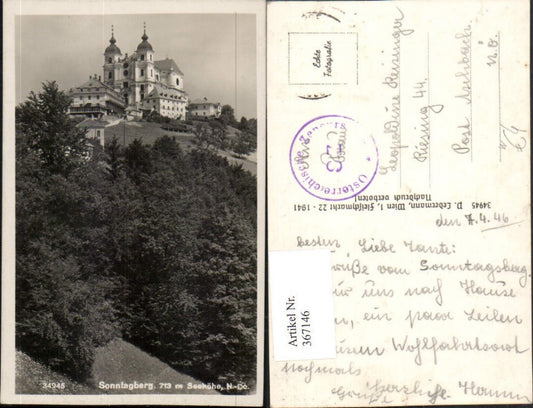 34945
Sonntagberg. 713 m Seehöhe, N.-Do.
Echte
Fotografie
Österreichische Zensur
Leopoldine Reisinger
Reising 44.
Post Aschbach
N.Ö.
34945 P. Ledermann, Wien I, Fleischmarkt 22 - 1941
Nachdruck verboten!
den 7.4.46
Liebe Tante:
vom Sonntagsberg.
uns nach Hause
ein paar Zeilen
Wohlfahrtsort
nochmals
Artikel Nr.
367146